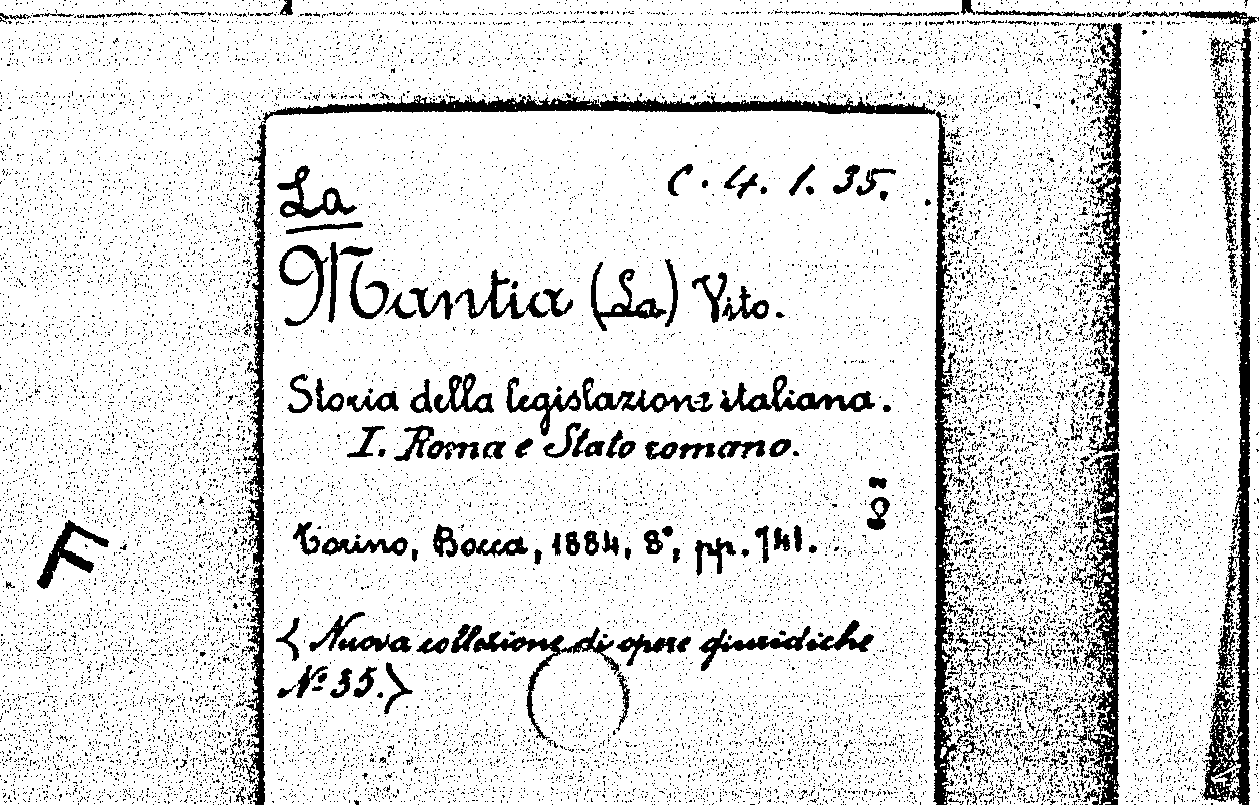 C. 4. 1. 35.
La
Mantia (La) Vito.
Storia della legislazione italiana.
I. Roma e Stato romano.
Torino, Bocca, 1884, 8°, pp. 741.
F
{Nuova collezione di opere giuridiche
Nº 35.}